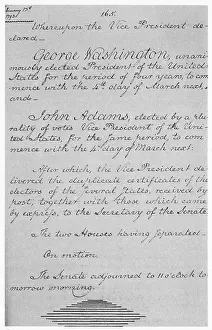 165.
Whereupon the Vice President de-
clared—
George Washington, unani-
mously elected President of the United
States for the period of four years, to com-
mence with the 4th day of March next,
and—
John Adams, elected by a plu-
rality of votes Vice President of the Uni-
ted States, for the same period, to com-
mence with the 4th day of March next.
After which, the Vice President de-
livered the duplicate certificates of the
electors of the several States, received by
post, together with those which came
by express, to the Secretary of the Senate.
The two Houses having separated—
On motion
The Senate adjourned to 11 o'clock to-
morrow morning.